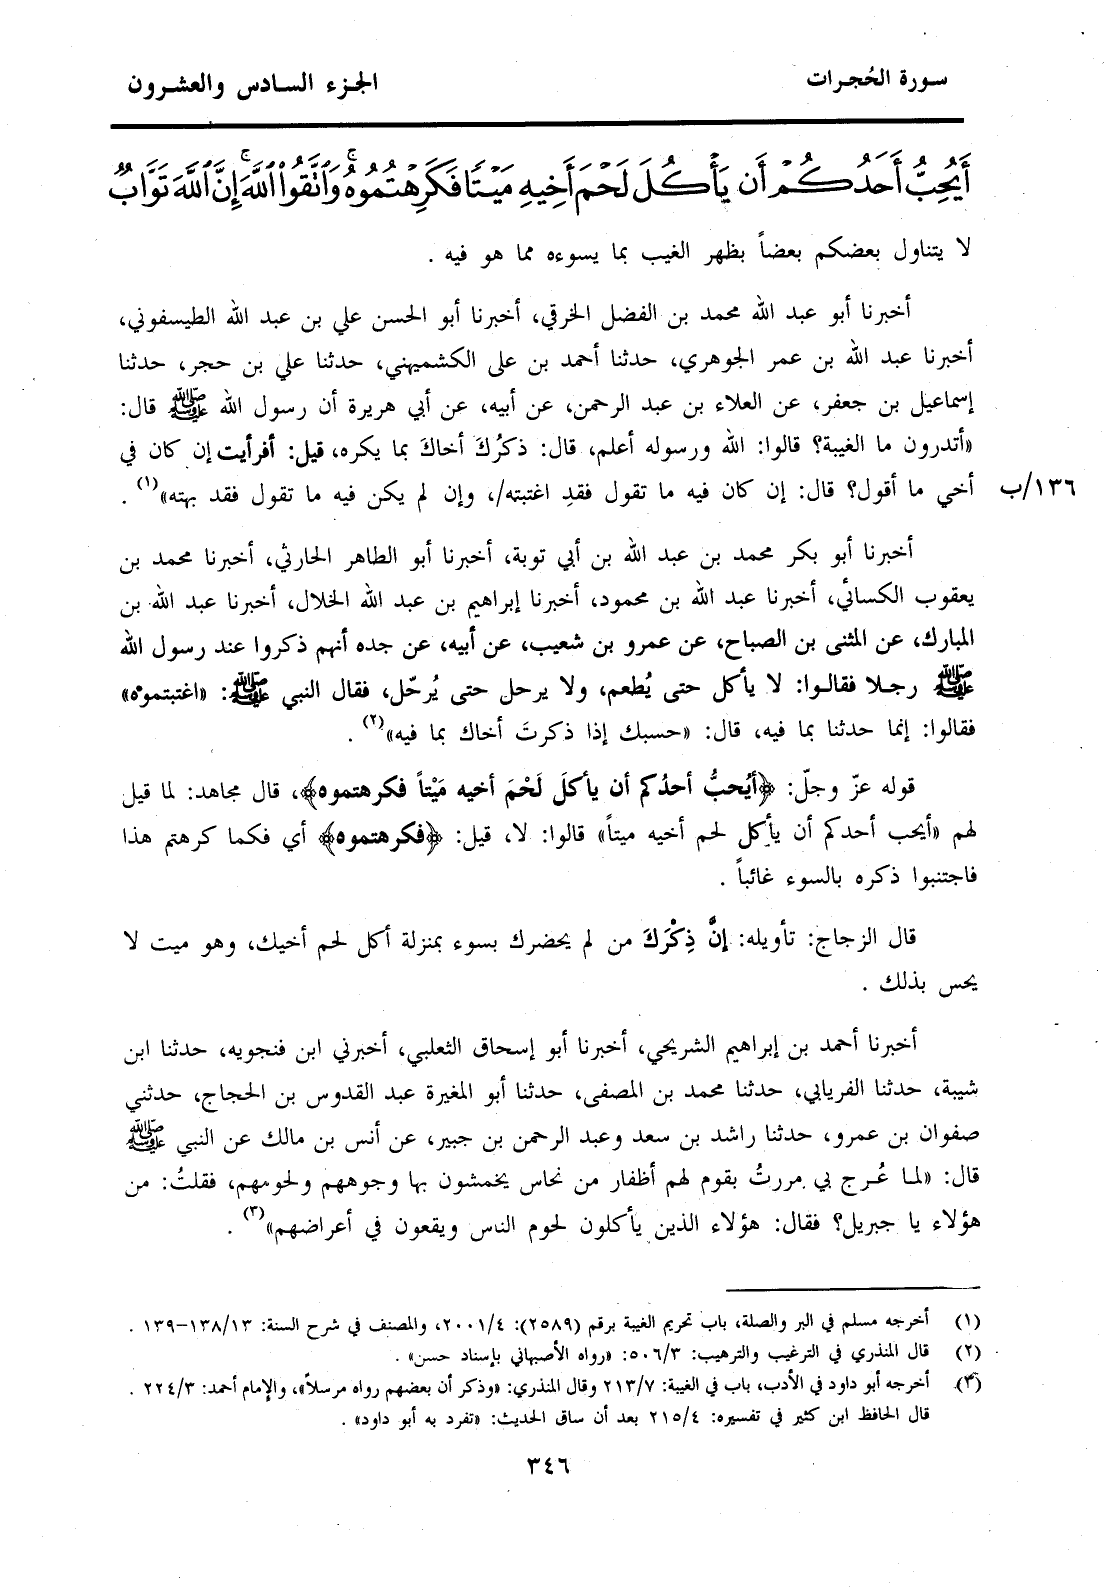 سورة الحُجرات
الجزء السادس والعشرون
أَيُحِبُّ أَحَدُكُمْ أَن يَأْكُلَ لَحْمَ أَخِيهِ مَيْتًا فَكَرِهْتُمُوهُ ۚ وَاتَّقُوا اللَّهَ ۚ إِنَّ اللَّهَ تَوَّابٌ
لا يتناول بعضكم بعضاً بظهر الغيب بما يسوءه مما هو فيه .
أخبرنا أبو عبد الله محمد بن الفضل الخرقي، أخبرنا أبو الحسن علي بن عبد الله الطيسفوني،
أخبرنا عبد الله بن عمر الجوهري، حدثنا أحمد بن على الكشميهني، حدثنا علي بن حجر، حدثنا
إسماعيل بن جعفر، عن العلاء بن عبد الرحمن، عن أبيه، عن أبي هريرة أن رسول الله ﷺ قال:
«أتدرون ما الغيبة؟ قالوا: الله ورسوله أعلم، قال: ذكرُكَ أخاكَ بما يكره، قيل: أفرأيت إن كان في
أخي ما أقول؟ قال: إن كان فيه ما تقول فقدِ اغتبته/، وإن لم يكن فيه ما تقول فقد بهته»(١) .
١٣٦/ب
أخبرنا أبو بكر محمد بن عبد الله بن أبي توبة، أخبرنا أبو الطاهر الحارثي، أخبرنا محمد بن
يعقوب الكسائي، أخبرنا عبد الله بن محمود، أخبرنا إبراهيم بن عبد الله الخلال، أخبرنا عبد الله بن
المبارك، عن المثنى بن الصباح، عن عمرو بن شعيب، عن أبيه، عن جده أنهم ذكروا عند رسول الله
ﷺ رجلا فقالوا: لا يأكل حتى يُطعم، ولا يرحل حتى يُرحّل، فقال النبي ﷺ: «اغتبتموه»
فقالوا: إنما حدثنا بما فيه، قال: «حسبك إذا ذكرتَ أخاك بما فيه»(٢) .
قوله عزّ وجلّ: ﴿أيُحبُّ أحدُكم أن يأكلَ لَحْمَ أخيه مَيْتاً فكرهتموه﴾، قال مجاهد: لما قيل
لهم «أيحب أحدكم أن يأكل لحم أخيه ميتاً» قالوا: لا، قيل: ﴿فكرهتموه﴾ أي فكما كرهتم هذا
فاجتنبوا ذكره بالسوء غائباً .
قال الزجاج: تأويله: إنَّ ذِكْرَكَ من لم يحضرك بسوء بمنزلة أكل لحم أخيك، وهو ميت لا
يحس بذلك .
أخبرنا أحمد بن إبراهيم الشريحي، أخبرنا أبو إسحاق الثعلبي، أخبرني ابن فنجويه، حدثنا ابن
شيبة، حدثنا الفريابي، حدثنا محمد بن المصفى، حدثنا أبو المغيرة عبد القدوس بن الحجاج، حدثني
صفوان بن عمرو، حدثنا راشد بن سعد وعبد الرحمن بن جبير، عن أنس بن مالك عن النبي ﷺ
قال: «لما عُرج بي مررتُ بقوم لهم أظفار من نحاس يخمشون بها وجوههم ولحومهم، فقلتُ: من
هؤلاء يا جبريل؟ فقال: هؤلاء الذين يأكلون لحوم الناس ويقعون في أعراضهم»(٣) .
(١) أخرجه مسلم في البر والصلة، باب تحريم الغيبة برقم (٢٥٨٩): ٢٠٠١/٤، والمصنف في شرح السنة: ١٣٨/١٣–١٣٩ .
(٢) قال المنذري في الترغيب والترهيب: ٥٠٦/٣: «رواه الأصبهاني بإسناد حسن» .
(٣) أخرجه أبو داود في الأدب، باب في الغيبة: ٢١٣/٧ وقال المنذري: «وذكر أن بعضهم رواه مرسلاً»، والإمام أحمد: ٢٢٤/٣ .
قال الحافظ ابن كثير في تفسيره: ٢١٥/٤ بعد أن ساق الحديث: «تفرد به أبو داود» .
٣٤٦